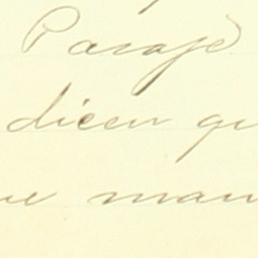 Parage
dicen qu
ue man